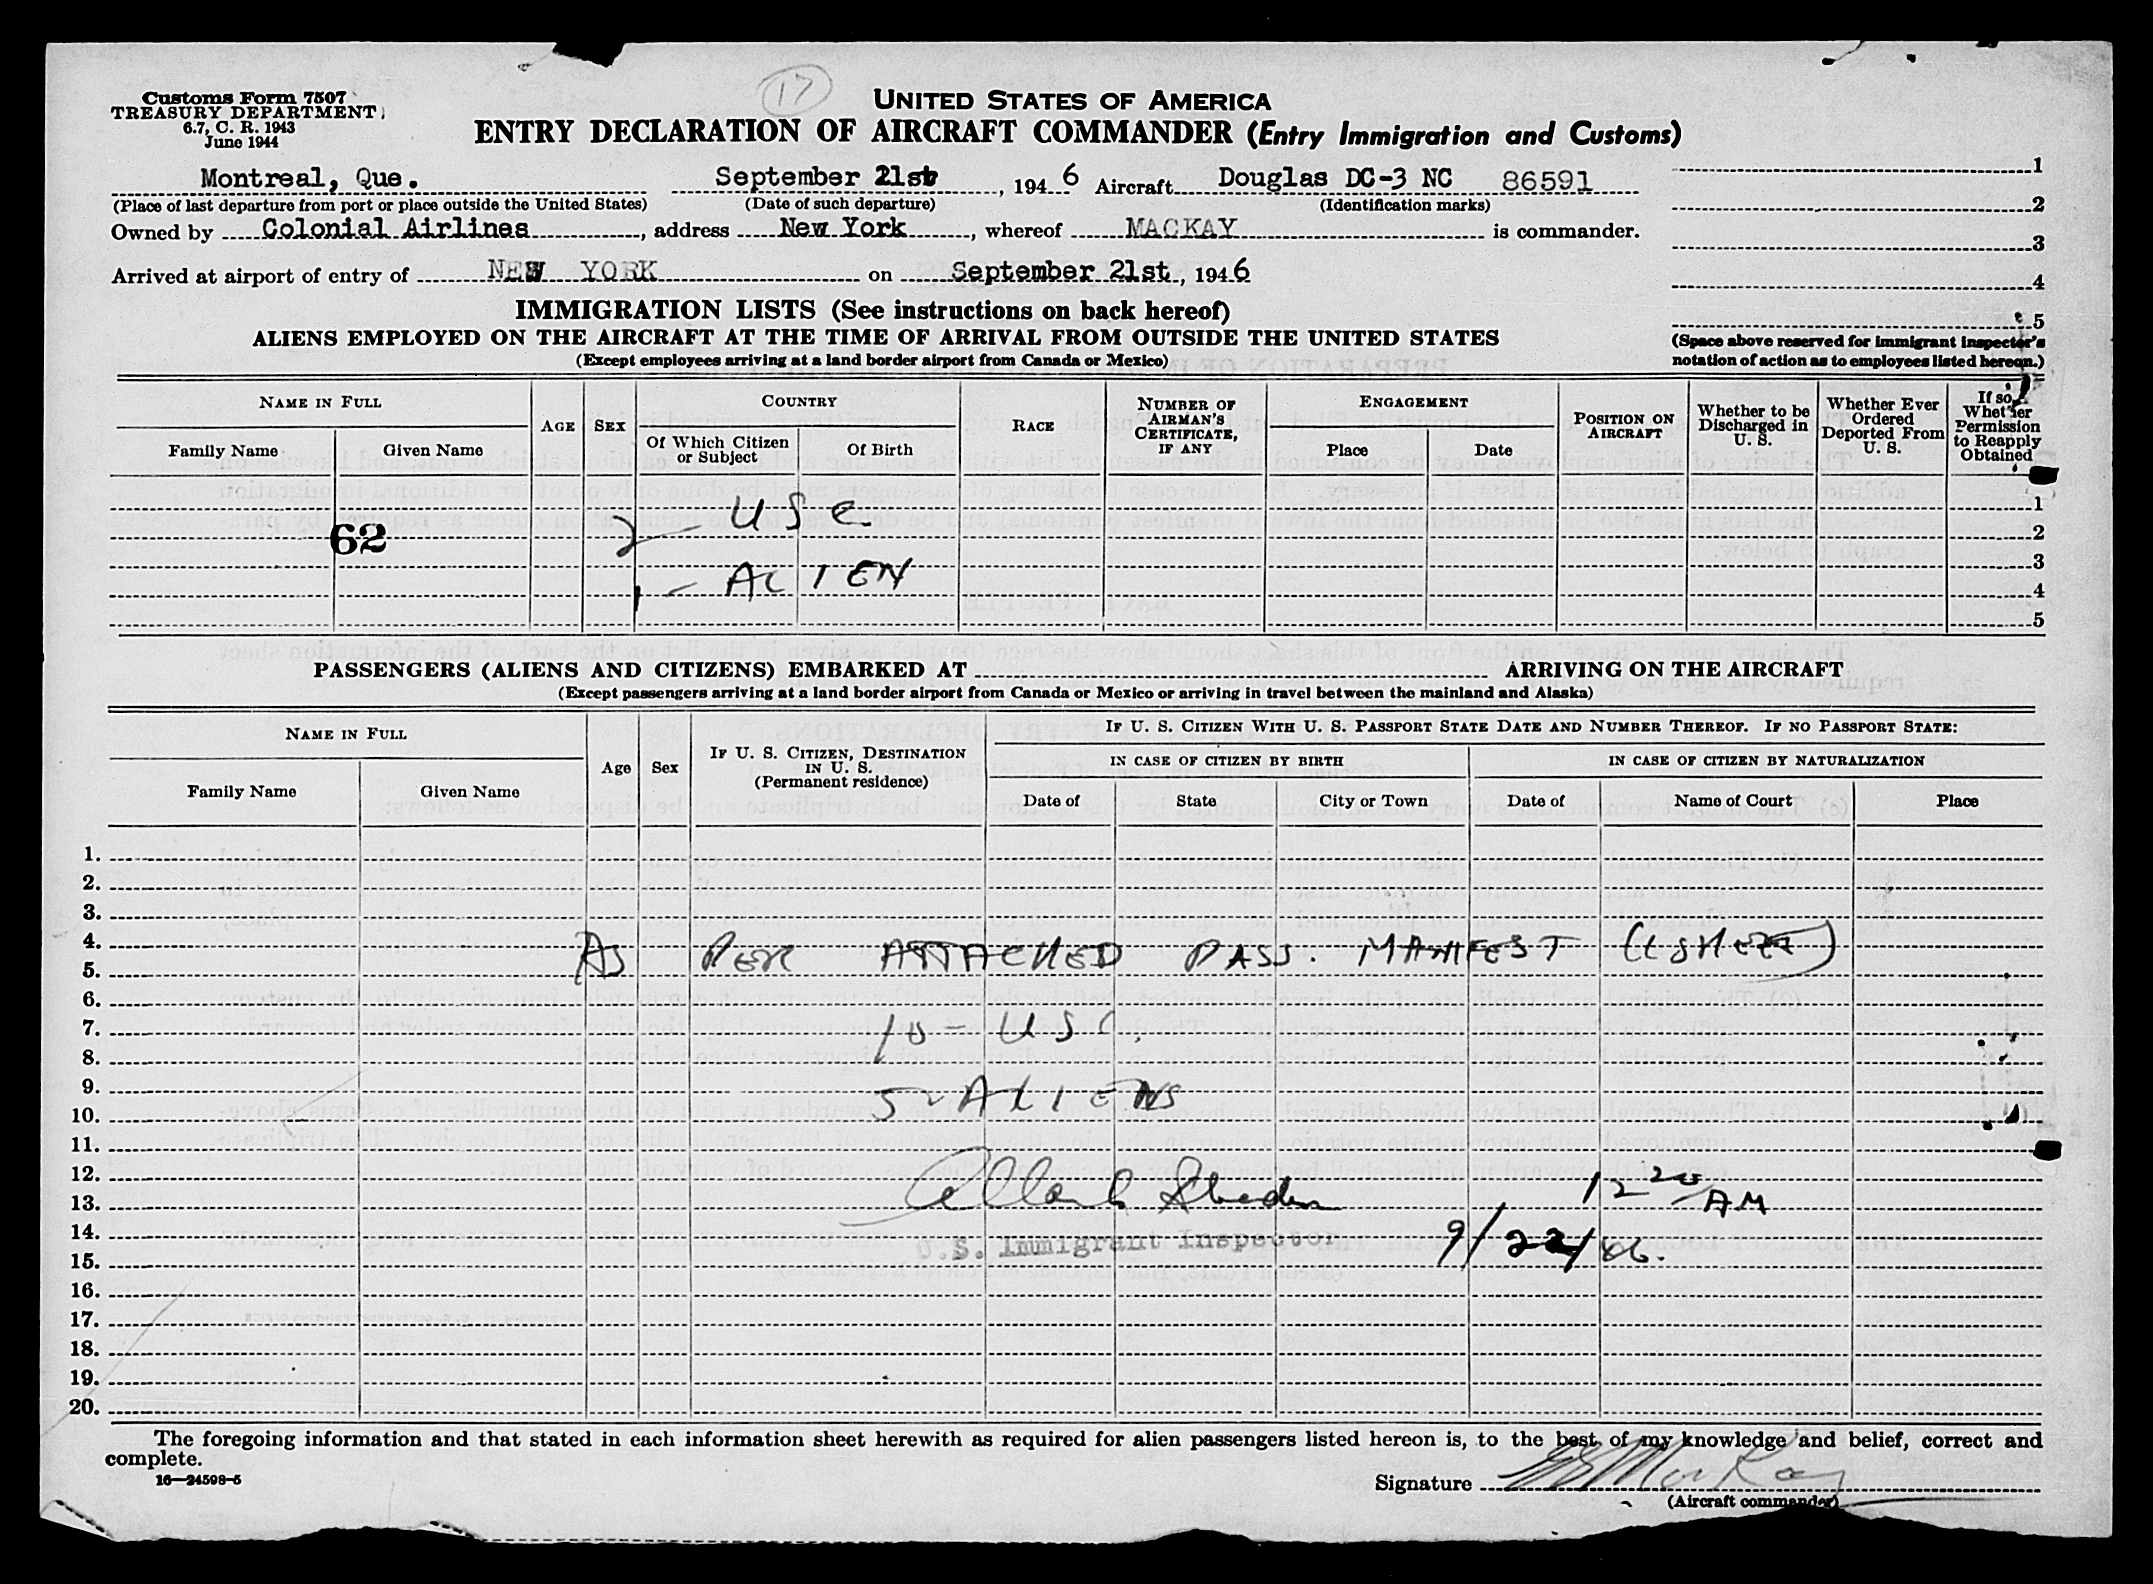 17
Customs Form 7507
TREASURY DEPARTMENT
6.7, C. R. 1943
June 1944
UNITED STATES OF AMERICA
ENTRY DECLARATION OF AIRCRAFT COMMANDER (Entry Immigration and Customs)
Montreal, Que. September 21st, 1946 Aircraft Douglas DC-3 NC 86591
(Place of last departure from port or place outside the United States) (Date of such departure) (Identification marks)
Owned by Colonial Airlines, address New York, whereof MACKAY is commander.
Arrived at airport of entry of NEW YORK on September 21st, 1946
1
2
3
4
5
(Space above reserved for immigrant inspector's
notation of action as to employees listed hereon.)
IMMIGRATION LISTS (See instructions on back hereof)
ALIENS EMPLOYED ON THE AIRCRAFT AT THE TIME OF ARRIVAL FROM OUTSIDE THE UNITED STATES
(Except employees arriving at a land border airport from Canada or Mexico)
NAME IN FULL
Family Name Given Name
AGE SEX
COUNTRY
Of Which Citizen or Subject Of Birth
RACE
NUMBER OF AIRMAN'S CERTIFICATE, IF ANY
ENGAGEMENT
Place Date
POSITION ON AIRCRAFT
Whether to be Discharged in U. S.
Whether Ever Ordered Deported From U. S.
If so, Whether Permission to Reapply Obtained
2 - USC. 1
62 2
3
1 - ALIEN 4
5
PASSENGERS (ALIENS AND CITIZENS) EMBARKED AT ARRIVING ON THE AIRCRAFT
(Except passengers arriving at a land border airport from Canada or Mexico or arriving in travel between the mainland and Alaska)
NAME IN FULL
Family Name Given Name
Age Sex
IF U. S. CITIZEN, DESTINATION IN U. S. (Permanent residence)
IF U. S. CITIZEN WITH U. S. PASSPORT STATE DATE AND NUMBER THEREOF. IF NO PASSPORT STATE:
IN CASE OF CITIZEN BY BIRTH IN CASE OF CITIZEN BY NATURALIZATION
Date of State City or Town Date of Name of Court Place
1.
2.
3.
4.
AS PER ATTACHED PASS. MANIFEST (1 SHEET)
5.
6.
7. 10 - USC.
8.
9.
5 - ALIENS
10.
11.
12. 12 20 AM
13.
14. 9/22/46.
U.S. Immigrant Inspector
15.
16.
17.
18.
19.
20.
The foregoing information and that stated in each information sheet herewith as required for alien passengers listed hereon is, to the best of my knowledge and belief, correct and
complete.
16—24598-5
Signature MacKay
(Aircraft commander)